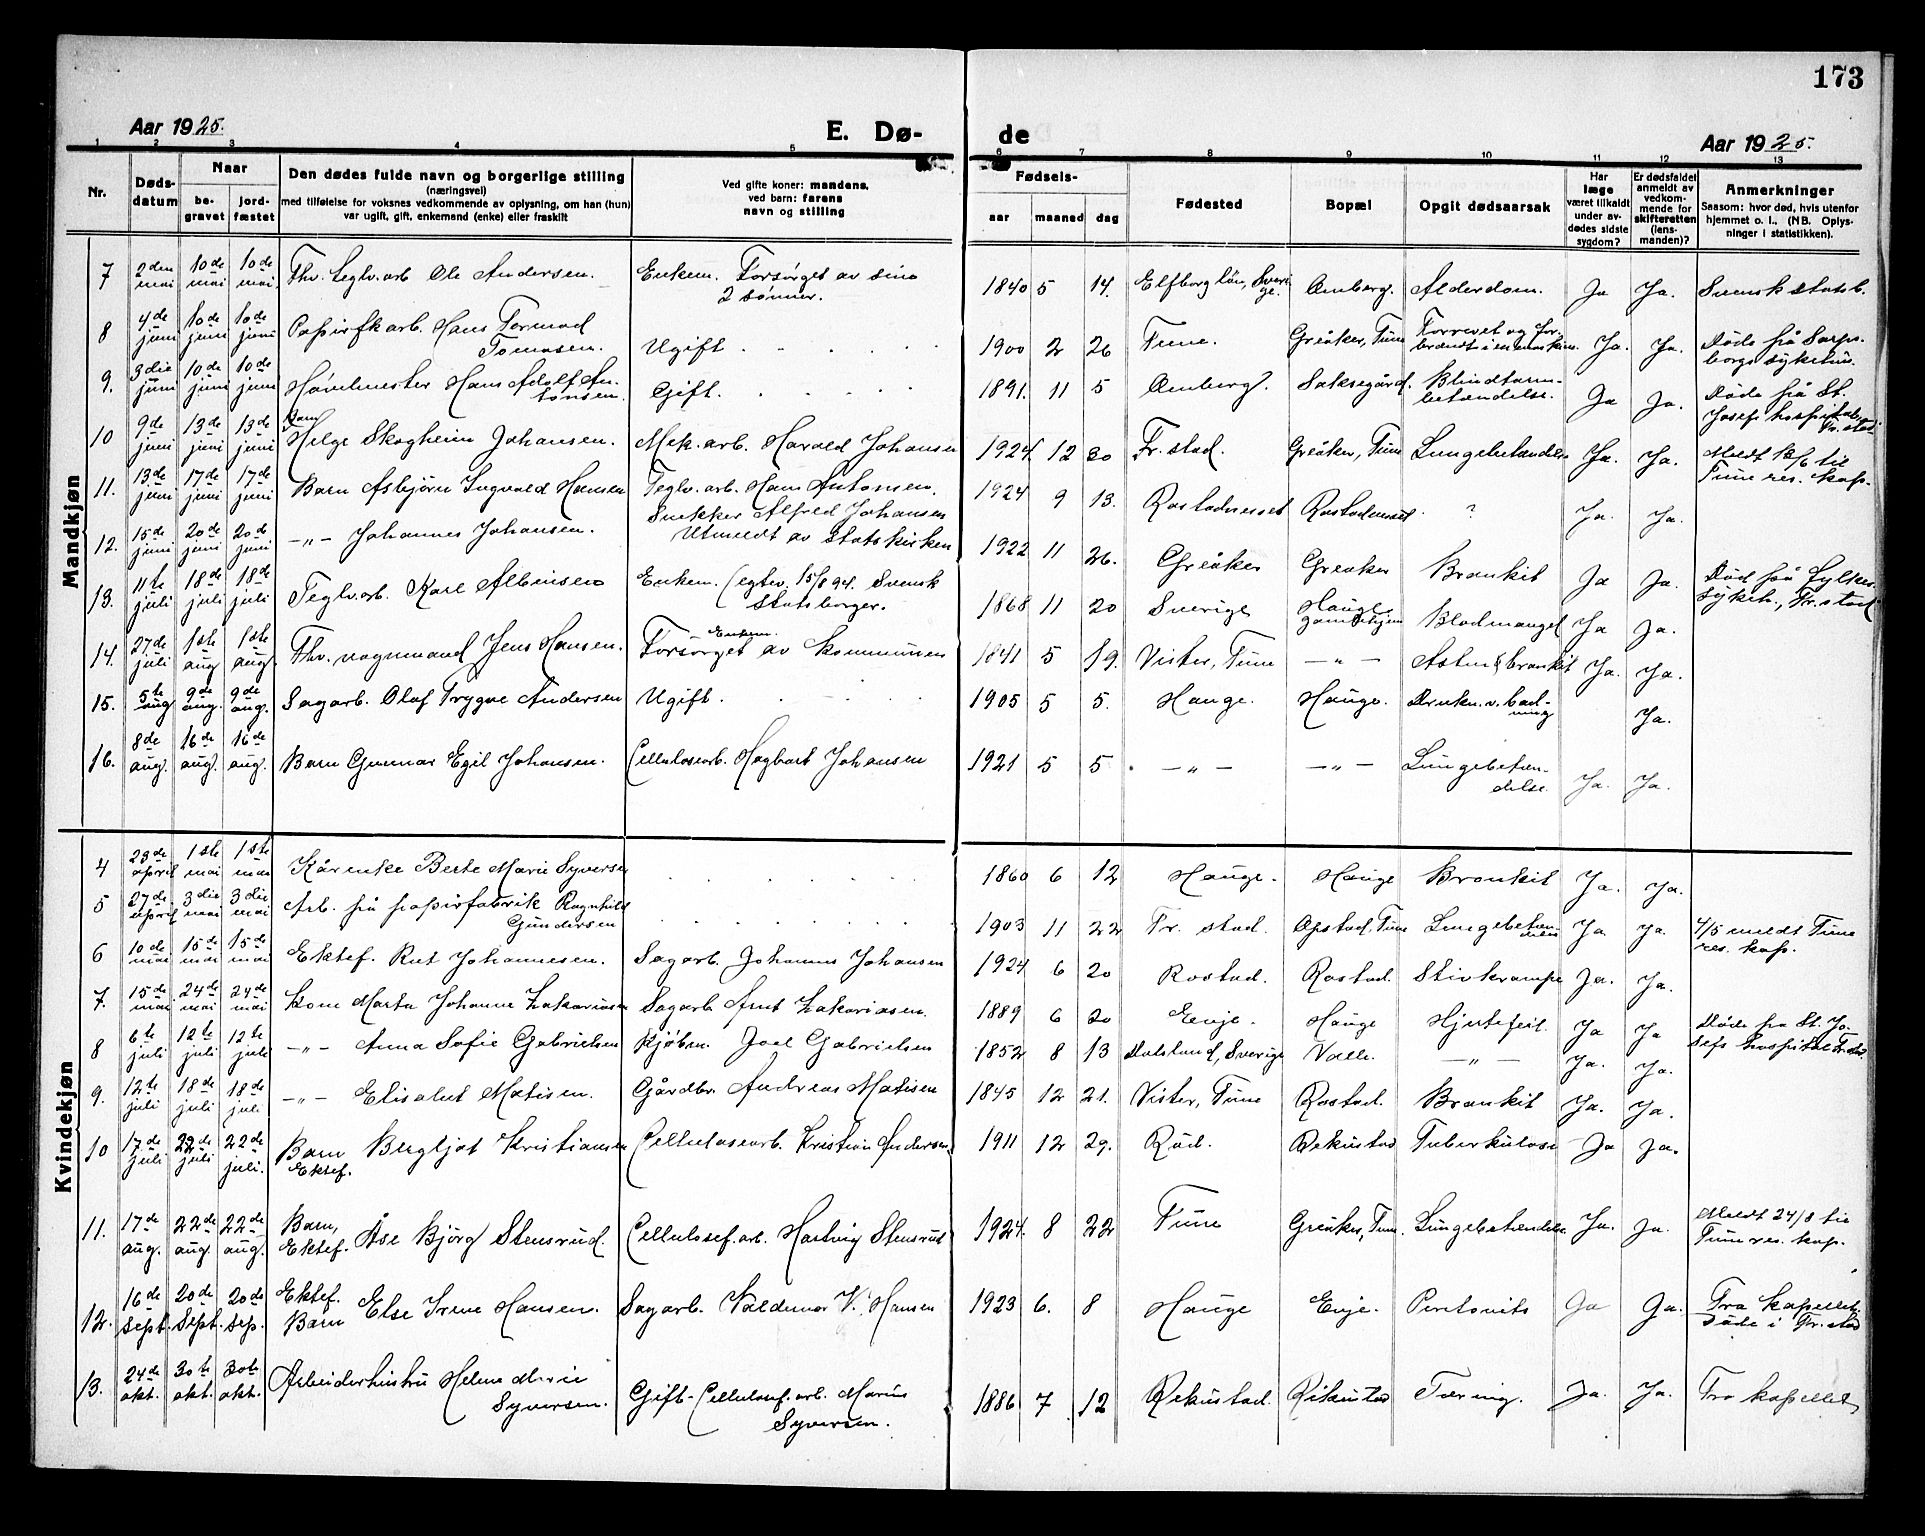 173
Aar 1925.
E. Dø-
de
Aar 1925.
1 2 3 4 5 6 7 8 9 10 11 12 13
Nr.
Døds-
datum
Naar
be-
gravet
jord-
fæstet
Den dødes fulde navn og borgerlige stilling
(næringsvei)
med tilføielse for voksnes vedkommende av oplysning, om han (hun)
var ugift, gift, enkemand (enke) eller fraskilt
Ved gifte koner: mandens,
ved barn: farens
navn og stilling
Fødsels-
aar maaned dag
Fødested
Bopæl
Opgit dødsaarsak
Har
læge
været tilkaldt
under av-
dødes sidste
sygdom?
Er dødsfaldet
anmeldt av
vedkom-
mende for
skifteretten
(lens-
manden)?
Anmerkninger
Saasom: hvor død, hvis utenfor
hjemmet o. l., (NB. Oplys-
ninger i statistikken).
Mandkjøn
7 2den mai 10de mai 10de mai Fhv. teglv.arb Ole Andersen. Enkem. Forsørget av sine 2 sønner. 1840 5 14. Elfborg län, Sverige. Omberg. Alderdom. Ja Ja. Svensk statsb.
8 4de juni 10de juni 10de juni Papirfk arb. Hans Tormod Tomasen. Ugift 1900 2 26 Tune. Greåker, Tune Forrevet og forbrændt i en maskin. Ja. Ja. Døde på Sarpsborg sykehus.
9. 3die juni 10de juni 10de juni Høvlmester Hans Adolf Antonsen. Gift. 1891. 11 5 Omberg. Saksegård. Blindtarmbetændelse. Ja Ja. Døde på St. Josefs hospital, Fr.stad
10 9de juni 13de juni 13de juni Barn Helge Skogheim Johansen. Mek. arb. Harald Johansen 1924. 12 30 Fr. stad. Greåker, Tune Lungebetændelse Ja. Ja. Meldt 12/6 til Tune res. kap.
11. 13de juni 17de juni 17de juni Barn Asbjørn Ingvald Hansen Teglv. arb. Hans Antonsen. 1924 9 13. Rostadneset Rostadneset ? Ja. Ja.
12. 15de juni 20de juni 20de juni -„- Johannes Johansen. Snekker Alfred Johansen Utmeldt av statskirken 1922 11 26. Greåker Greåker Bronkit Ja Ja.
13. 11te juli 18de juli 18de juli Teglv. arb. Karl Albinsen Enkem. (egtev. 15/8 94. Svensk Statsborger. 1868 11 20 Sverige Hauge gamlehjem Blodmangel Ja Ja. Død på Fylkessykeh., Fr.stad
14. 27de juli 1ste aug 1ste aug. Fhv. vognmand Jens Hansen. Enkem. Forsørget av kommunen 1841 5 19. Vister, Tune -„- Astma & bronkit Ja. Ja.
15. 5te aug 9de aug. 9de aug. Sagarb. Olaf Trygve Andersen Ugift. 1905 5 5. Hauge. Hauge. Drukn. v. badning Ja.
16. 8de aug. 16de aug. 16de aug. Barn Gunnar Egil Johansen. Cellulosearb. Hagbart Johansen 1921 5 5 -„- -„- Lungebetændelse. Ja. Ja.
Kvindekjøn
4 23de april 1ste mai 1ste mai Kårenke Berte Marie Syversen 1860 6 12 Hauge. Hauge Bronkit Ja. Ja.
5 27de april 3die mai 3die mai Arb. på papirfabrik Ragnhild Gundersen 1903 11 22 Fr. stad. Opstad, Tune Lungebetændelse Ja Ja. 4/5 meldt Tune res. kap.
6 10de mai 15de mai 15de mai Ektef. Rut Johannesen. Sagarb. Johannes Johansen 1924 6 20 Rostad. Rostad. Stivkrampe Ja. Ja.
7. 15de mai 24de mai 24de mai Kone Marta Johanne Zakariasen Sagarb Arnt Zakariasen. 1889 6 20 Evje. Hauge Hjertefeil. Ja Ja Døde på St. Josefs hospital Fr.stad
8 6te juli 12te juli 12te juli -„- Anna Sofie Gabrielsen Kjøbm. Joel Gabrielsen 1852 8 13 Dalsland, Sverige Valle. -„- Ja. Ja.
9. 12te juli 18de juli 18de juli -„- Elisabet Matisen. Gårdbr. Andreas Matisen 1845 12 21. Vister, Tune Rostad. Bronkit Ja. Ja.
10 17de juli 22de juli 22de juli. Barn Ektef. Bergljot Kristiansen Cellulosearb. Kristian Andersen. 1911 12 29. Röd. Rekustad Tuberkulose Ja Ja.
11. 17de aug. 22de aug 22de aug. Barn, Ektef. Åse Bjørg Stensrud. Cellulosef. arb. Hartvig Stensrud 1924. 8 22 Tune Greåker, Tune. Lungebetændelse Ja. Ja. Meldt 24/8 til Tune res. kap.
12. 16de sept. 20de Sept. 20de sep. Ektef. Barn Else Irene Hansen. Sagarb. Valdemar V. Hansen 1923 6. 8 Hauge Evje. Peritonits Ja Ja. Fra kapellet. Døde i Fr.stad
13. 24de okt. 30te okt. 30te okt. Arbeiderhustru Helene Marie Syversen. Gift - Cellulosef. arb. Marius Syversen. 1886 7 12 Rekustad. Rekustad Tæring. Ja. Ja. Fra kapellet